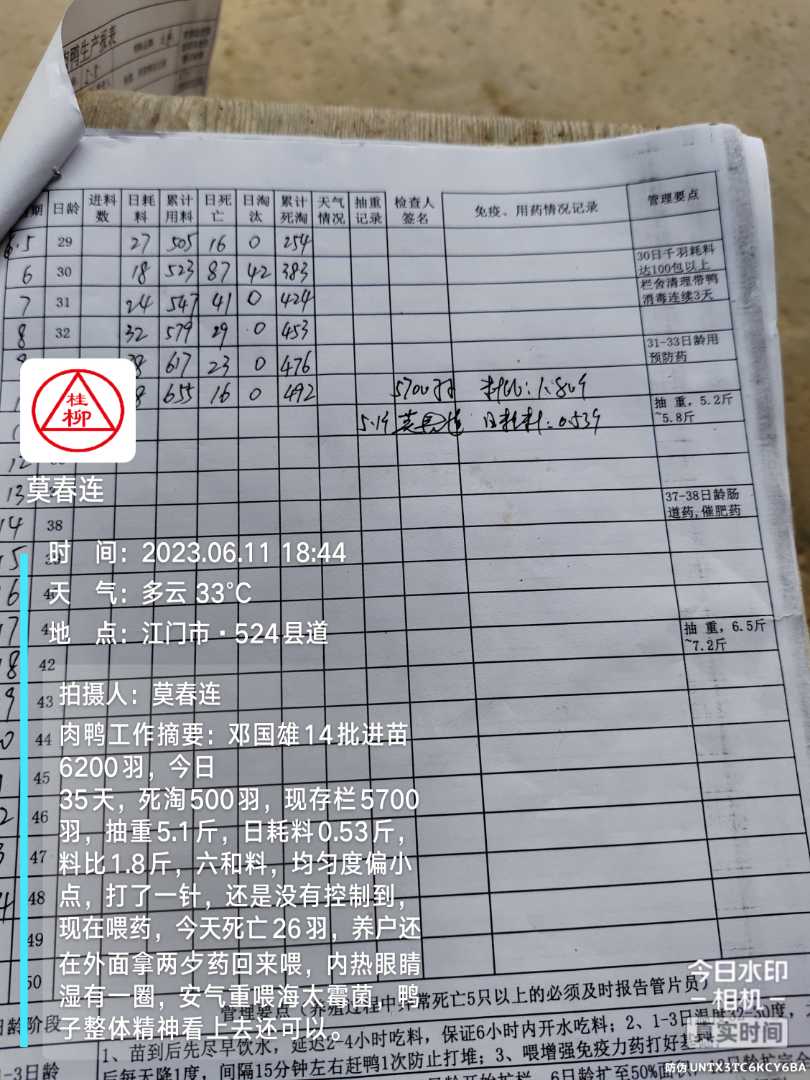 肉鸭生产报表
期 日龄 进料数 日耗料 累计用料 日死亡 日淘汰 累计死淘 天气情况 抽重记录 检查人签名 免疫、用药情况记录 管理要点
6.5 29 27 505 16 0 254
6 30 18 523 87 42 383 30日千羽耗料达100包以上
7 31 24 547 41 0 424 栏舍清理带鸭消毒连续3天
8 32 32 579 29 0 453
617 23 0 476 31-33日龄用预防药
655 16 0 492 5700羽 料比:1.809 抽 重，5.2斤~5.8斤
5.19 莫春连 日耗料:0.539
桂柳
12
莫春连
13 37-38日龄肠道药,催肥药
14 38
时 间：2023.06.11 18:44
天 气：多云 33℃
地 点：江门市·524县道
抽 重，6.5斤~7.2斤
42
43
44
45
46
47
48
49
50
拍摄人：莫春连
肉鸭工作摘要：邓国雄14批进苗
6200羽，今日
35天，死淘500羽，现存栏5700
羽，抽重5.1斤，日耗料0.53斤，
料比1.8斤，六和料，均匀度偏小
点，打了一针，还是没有控制到，
现在喂药，今天死亡26羽，养户还
在外面拿两歺药回来喂，内热眼睛
湿有一圈，安气重喂海太霉菌，鸭
子整体精神看上去还可以。
今日水印
相机
真实时间
管理要点（养殖过程中异常死亡5只以上的必须及时报告管片员）
日龄阶段
1-3日龄
1、苗到后先尽早饮水，延迟2-4小时吃料，保证6小时内开水吃料；2、1-3日温度32-30度，
后每天降1度，间隔15分钟左右赶鸭1次防止打堆；3、喂增强免疫力药打好基
防伪 UNTX3TC6KCY6BA